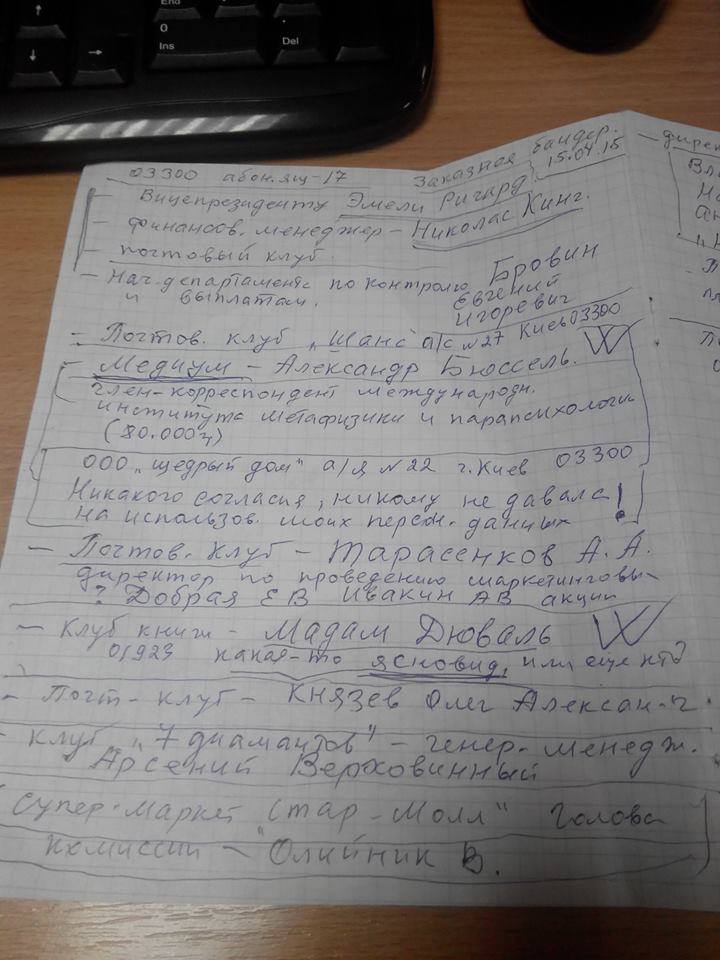 End
0
Ins
Del
03300 абон. ящ-17
Заказная бандер.
15.04.15
Вицепрезиденту Эмели Ригард
- финансов. менеджер - Николас Кинг.
- почтовый клуб.
- Нач. департамента по контролю Бровин
и выплатам. Евгений
Игоревич
- Почтов. клуб "Шанс" а/с №27 Киев 03300
- Медиум - Александр Бюссель.
член-корреспондент международн.
института метафизики и парапсихологи
(80.000
ООО "щедрый дом" а/я №22 г. Киев 03300
Никакого согласия, никому не давала!
на использов. моих персон. данных
- Почтов. клуб - Тарасенков А. А.
директор по проведению маркетинговы-
? Добрая ЕВ Ивакин АВ акции
- Клуб книги - Мадам Дюваль
01923 какая-то ясновид, или еще кто?
- Почт - клуб - Князев Олег Алексан-ч.
- клуб "7 диамантов" - генер. менедж.
Арсений Верховинный
Супер-маркет "Стар-Молл" Голова
комиссии - Олийник В.
- дирек